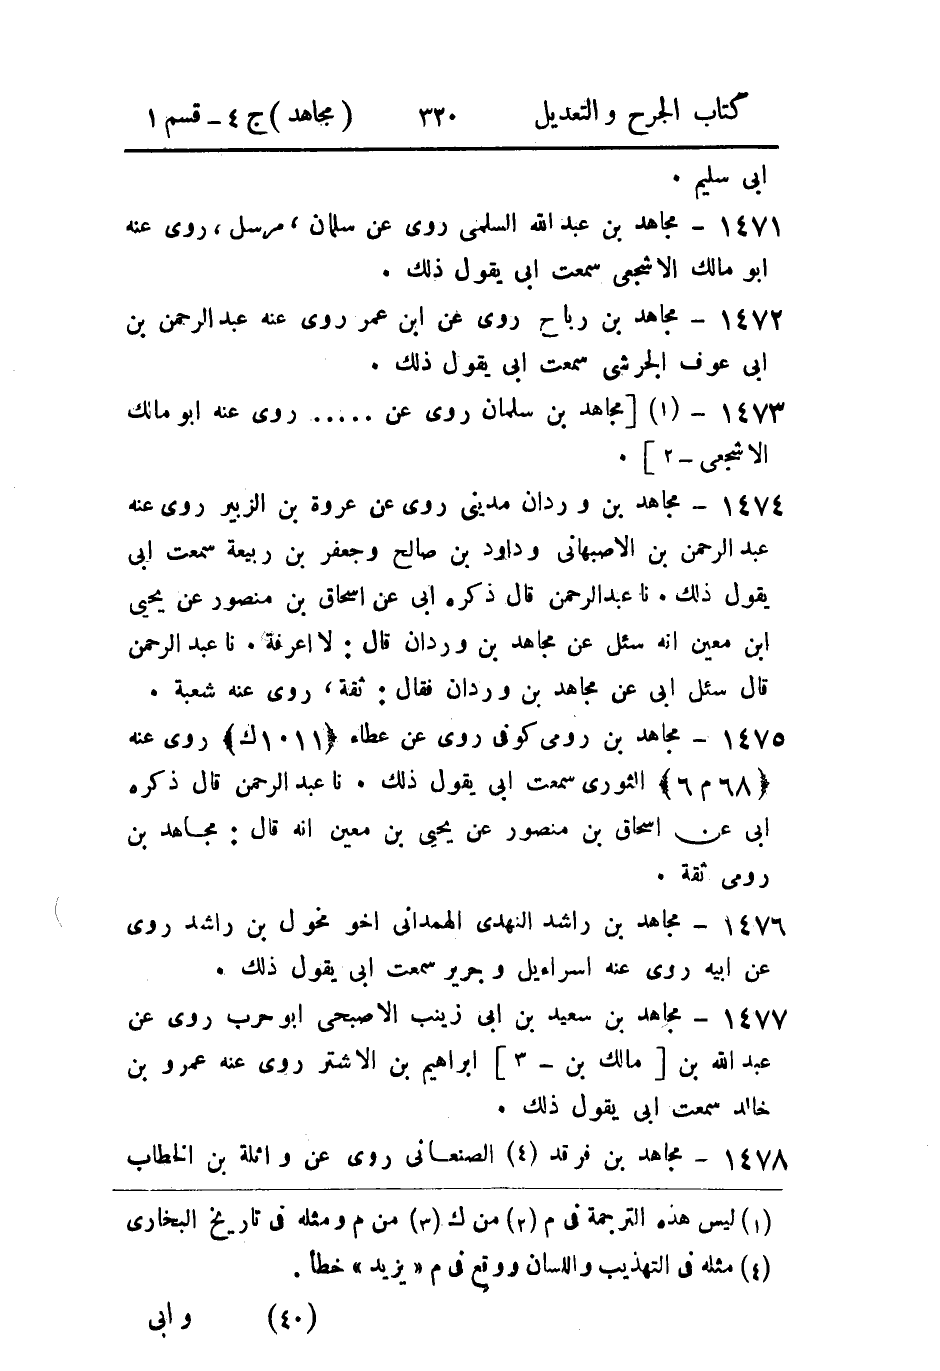 كتاب الجرح و التعديل ٣٢٠ ( مجاهد ) ج ٤ – قسم ١
ابى سليم ٠
١٤٧١ – مجاهد بن عبد الله السلمى روى عن سلمان ، مرسل ، روى عنه
ابو مالك الاشجعى سمعت ابى يقول ذلك ٠
١٤٧٢ – مجاهد بن رباح روى عن ابن عمر روى عنه عبد الرحمن بن
ابى عوف الجرشى سمعت ابى يقول ذلك ٠
١٤٧٣ – (١) [ مجاهد بن سلمان روى عن ..... روى عنه ابو مالك
الاشجعى – ٢ ] ٠
١٤٧٤ – مجاهد بن و ردان مدينى روى عن عروة بن الزبير روى عنه
عبد الرحمن بن الاصبهانى و داود بن صالح و جعفر بن ربيعة سمعت ابى
يقول ذلك ٠ نا عبد الرحمن قال ذكره ابى عن اسحاق بن منصور عن يحيى
ابن معين انه سئل عن مجاهد بن و ردان قال : لا اعرفة ٠ نا عبد الرحمن
قال سئل ابى عن مجاهد بن و ردان فقال : ثقة ، روى عنه شعبة ٠
١٤٧٥ – مجاهد بن رومى كوفى روى عن عطاء ﴿١٠١١ك﴾ روى عنه
﴿٦٨ م ٦﴾ الثورى سمعت ابى يقول ذلك ٠ نا عبد الرحمن قال ذكره
ابى عن اسحاق بن منصور عن يحيى بن معين انه قال : مجاهد بن
رومى ثقة ٠
١٤٧٦ – مجاهد بن راشد النهدى الهمدانى اخو مخول بن راشد روى
عن ابيه روى عنه اسراءيل و جرير سمعت ابى يقول ذلك ٠
١٤٧٧ – مجاهد بن سعيد بن ابى زينب الاصبحى ابو حرب روى عن
عبد الله بن [ مالك بن – ٣ ] ابراهيم بن الاشتر روى عنه عمرو بن
خالد سمعت ابى يقول ذلك ٠
١٤٧٨ – مجاهد بن فرقد (٤) الصنعانى روى عن و اثلة بن الخطاب
(١) ليس هذه الترجمة فى م (٢) من ك (٣) من م و مثله فى تاريخ البخارى
(٤) مثله فى التهذيب و اللسان و وقع فى م « يزيد » خطأ .
(٤٠) و ابى